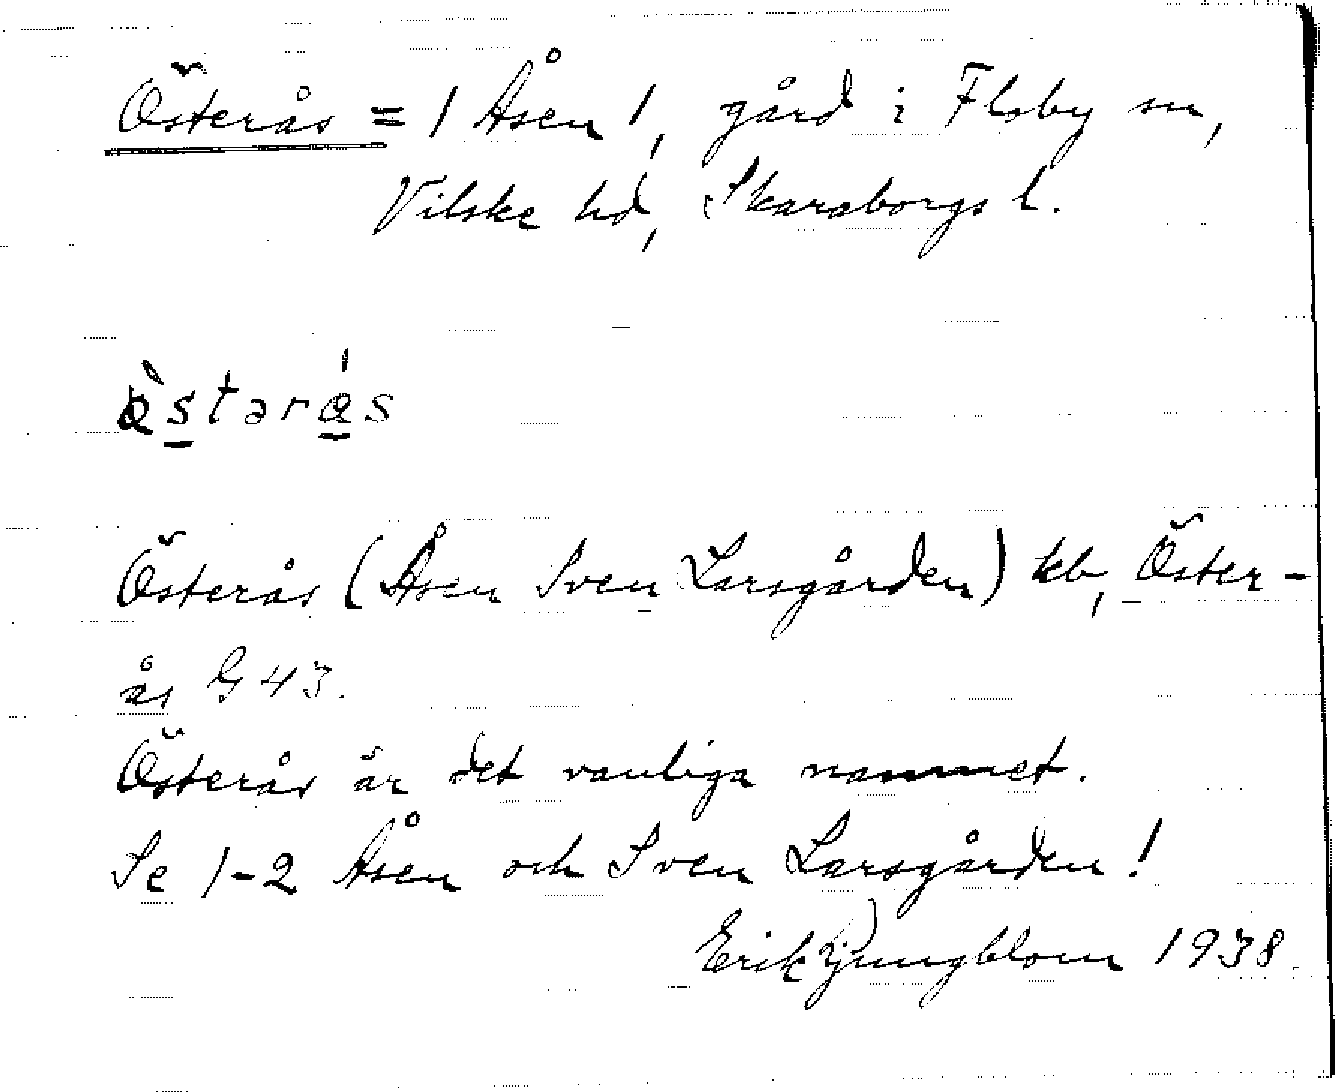 Österås = 1 Åsen 1, gård i Floby sn,
Vilske hd, Skaraborgs l.
Österås (Åsen Sven Larsgården) kb, Öster-
ås G 43.
Österås är det vanliga namnet.
Se 1-2 Åsen och Sven Larsgården!
Erik Ljungblom 1938